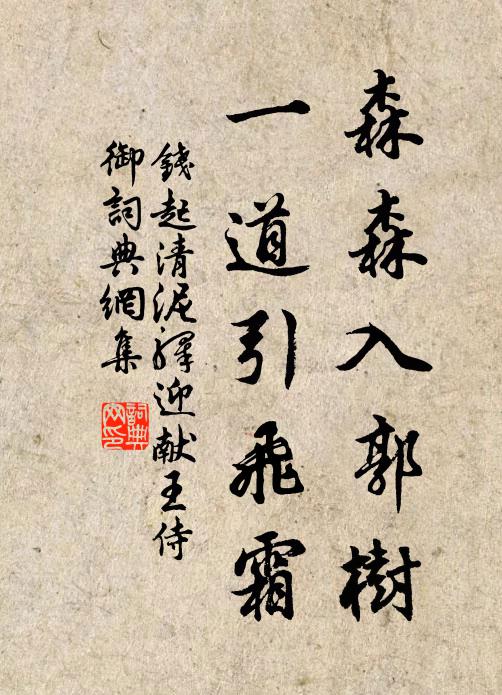 森森入郭樹
一道引飛霜
錢起清泥驛迎献王侍
御詞典網集
詞典
网印